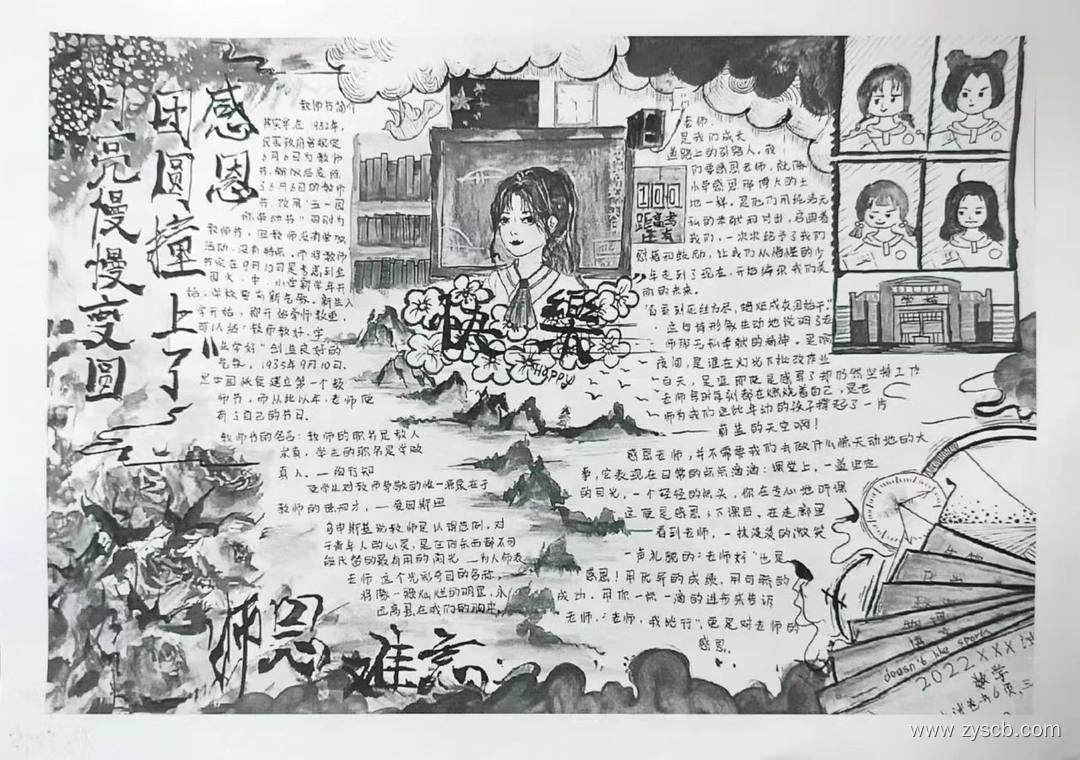 月亮慢慢变圆
团圆撞上了
感恩
教师节简介
其实早在1932年，
民国政府曾规定
6月6日为教师
节，解放后废除
了6月6日的教师
节，改用"五一国
际劳动节"同时为
教师节，但教师没有单独
活动，没有特点。而将教师
节定在9月10日是考虑到全
国大、中、小学新学年开
始，学校要有新气象。新生入
学开始，即开始尊师重道，
可以给"教师教好，学
生学好"创造良好的
气氛。1935年9月10日，
是中国恢复建立第一个教
师节，而从此以年，老师便
有了自己的节日。
教师节的名言：教师的职务是教人
求真，学生的职务是学做
真人。—陶行知
教师的模范，—爱因斯坦
老师，这个光彩夺目的名称，
将像一颗灿烂的明星，永
远高悬在我们的胸中。
师恩难忘
快樂
HAPPY
100
距高考
还有
老师，
是我们成长
道路上的引路人。我
们要感恩老师，就像
小草感恩那博大的土
地一样，是他们用纯洁无
私的奉献和付出，容面着
我们，一次次给予了我们
感染和鼓励，让我们从懵懂的少
年走到了现在，开始编织我们美
丽的未来。
"春蚕到死丝方尽，蜡炬成灰泪始干。"
这句诗形象生动地说明了老
师那无私奉献的精神。是啊
夜间，是谁在灯光下批改作业
白天，是谁即便是感冒了却仍然坚持工作
老师每时每刻都在燃烧着自己，是老
师为我们这些年幼的孩子撑起了一片
蔚蓝的天空啊！
感恩老师，并不需要我们去做什么惊天动地的大
事，它表现在日常的点点滴滴：课堂上，一道坚定
的目光，一个轻轻的点头，你在专心地听课
这便是感恩；下课后，在走廊里
看到老师，一抹淡淡的微笑
一声礼貌的"老师好"也是
感恩！用优异的成绩，用可喜的
成功，用你一点一滴的进步来告诉
老师，"老师，我能行"，更是对老师的
感恩。
学校
生物
历史
物理
语文
doesn't like sports
2022XXX
数学
www.zyscb.com